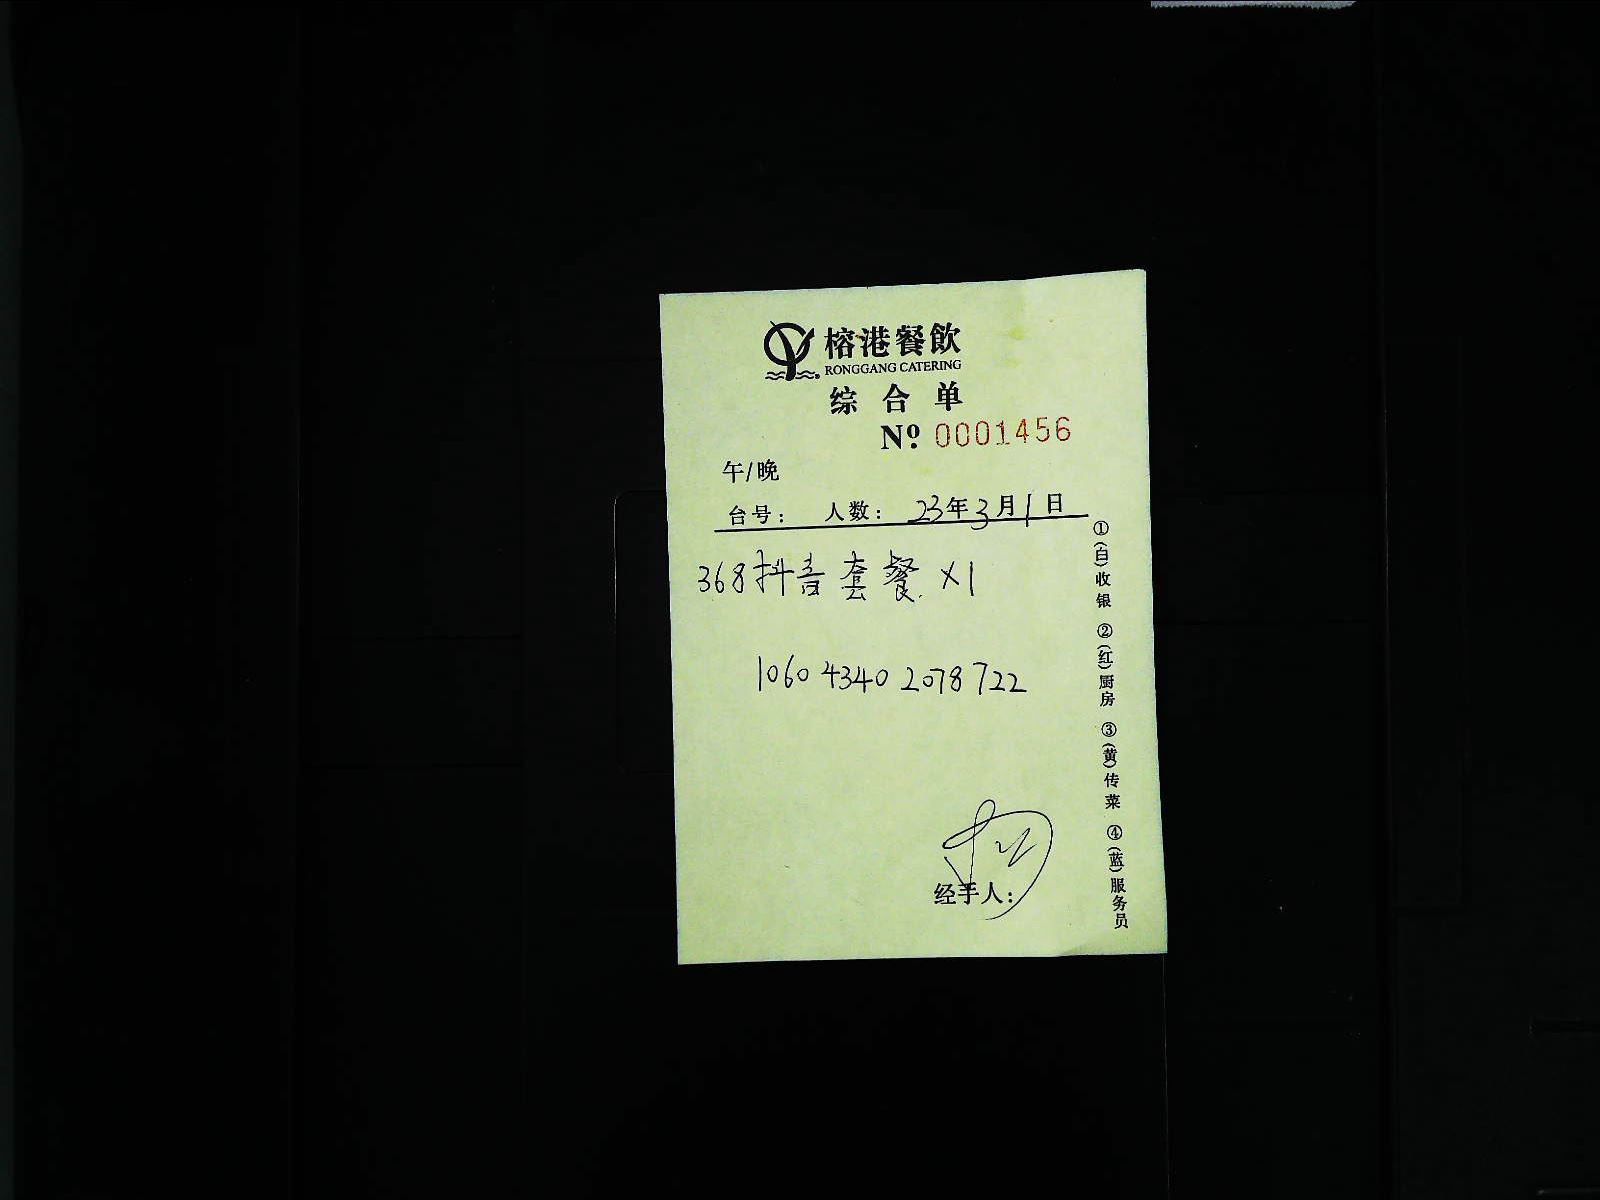 榕港餐飲
RONGGANG CATERING
综合单
Nº 0001456
午/晚
台号: 人数: 23年3月1日
368抖音套餐 X1
1060 4340 2078722
经手人:
①(白)收银 ②(红)厨房 ③(黄)传菜 ④(蓝)服务员